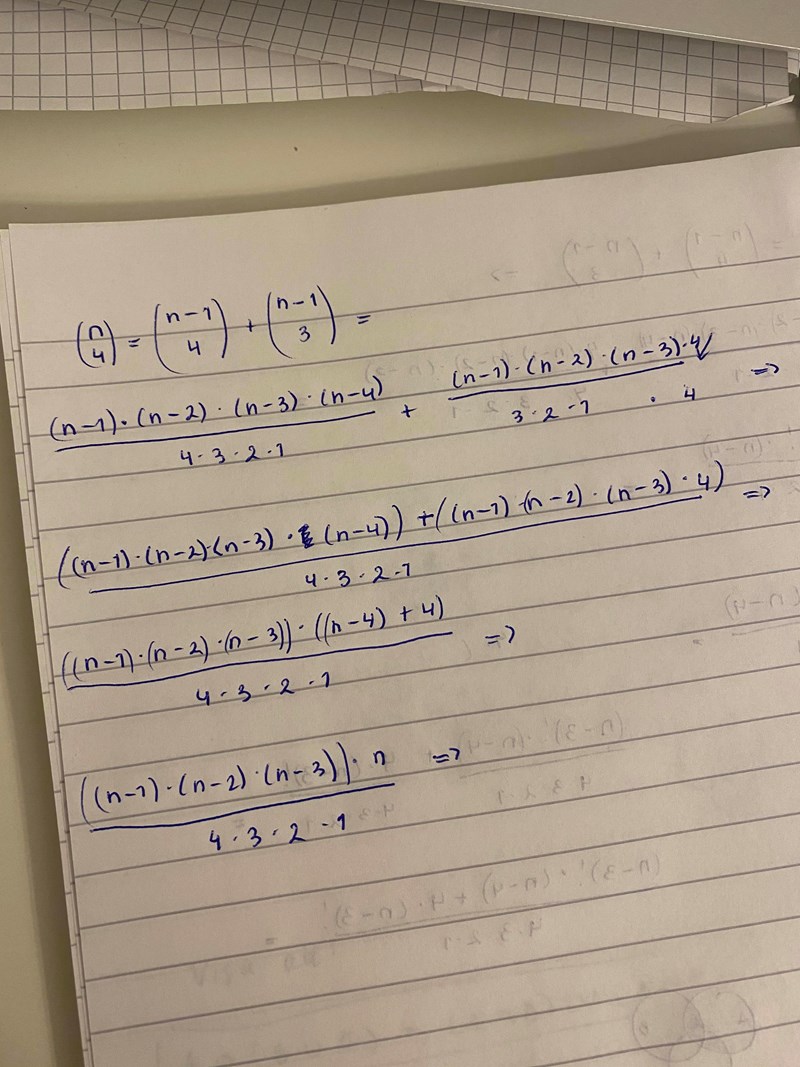 (n 4) = (n-1 4) + (n-1 3) =
(n-1)·(n-2)·(n-3)·(n-4) / 4·3·2·1 + (n-1)·(n-2)·(n-3)·4 / 3·2·1 · 4 =>
((n-1)·(n-2)·(n-3)·(n-4)) + ((n-1)·(n-2)·(n-3)·4) / 4·3·2·1 =>
((n-1)·(n-2)·(n-3))·((n-4)+4) / 4·3·2·1 =>
((n-1)·(n-2)·(n-3))·n / 4·3·2·1 =>